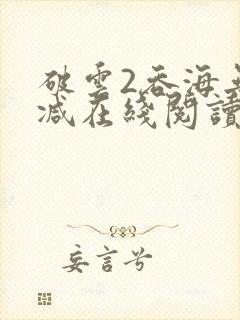 破雲2吞海無
減在綫閱讀
妄言兮